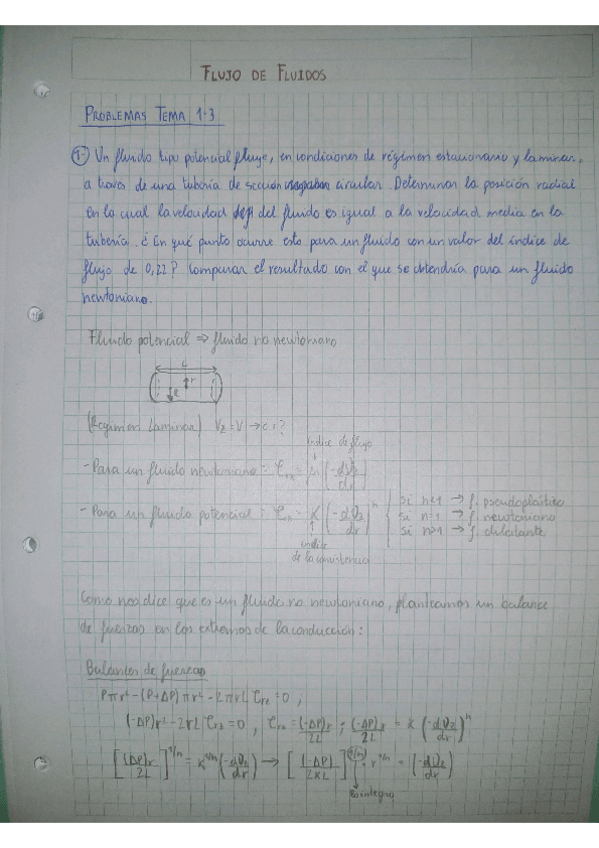 FLUJO DE FLUIDOS
PROBLEMAS TEMA 1-3
1- Un fluido tipo potencial fluye, en condiciones de régimen estacionario y laminar,
a través de una tubería de sección circular. Determinar la posición radial
en la cual la velocidad del fluido es igual a la velocidad media en la
tubería. ¿En qué punto ocurre esto para un fluido con un valor del índice de
flujo de 0,22? Comparar el resultado con el que se obtendría para un fluido
newtoniano.
Fluido potencial ⇒ fluido no newtoniano
L
r
R
(Régimen Laminar) Vz = V → c r?
índice de flujo
- Para un fluido newtoniano: τrx = μ (-dVz/dr)
- Para un fluido potencial: τrx = K (-dVz/dr)^n
si n<1 → f. pseudoplástico
si n=1 → f. newtoniano
si n>1 → f. dilatante
índice
de la consistencia
Como nos dice que es un fluido no newtoniano, planteamos un balance
de fuerzas en los extremos de la conducción:
Balances de fuerzas
Pπr² - (P+ΔP)πr² - 2πrL τrz = 0 ;
(-ΔP)r² - 2rL τrz = 0 , τrz = (-ΔP)r/2L ; (-ΔP)r/2L = K (-dVz/dr)^n
[(-ΔP)r/2L]^1/n = K^1/n (-dVz/dr) → [(-ΔP)/2KL]^(1/n) · r^1/n = (-dVz/dr)